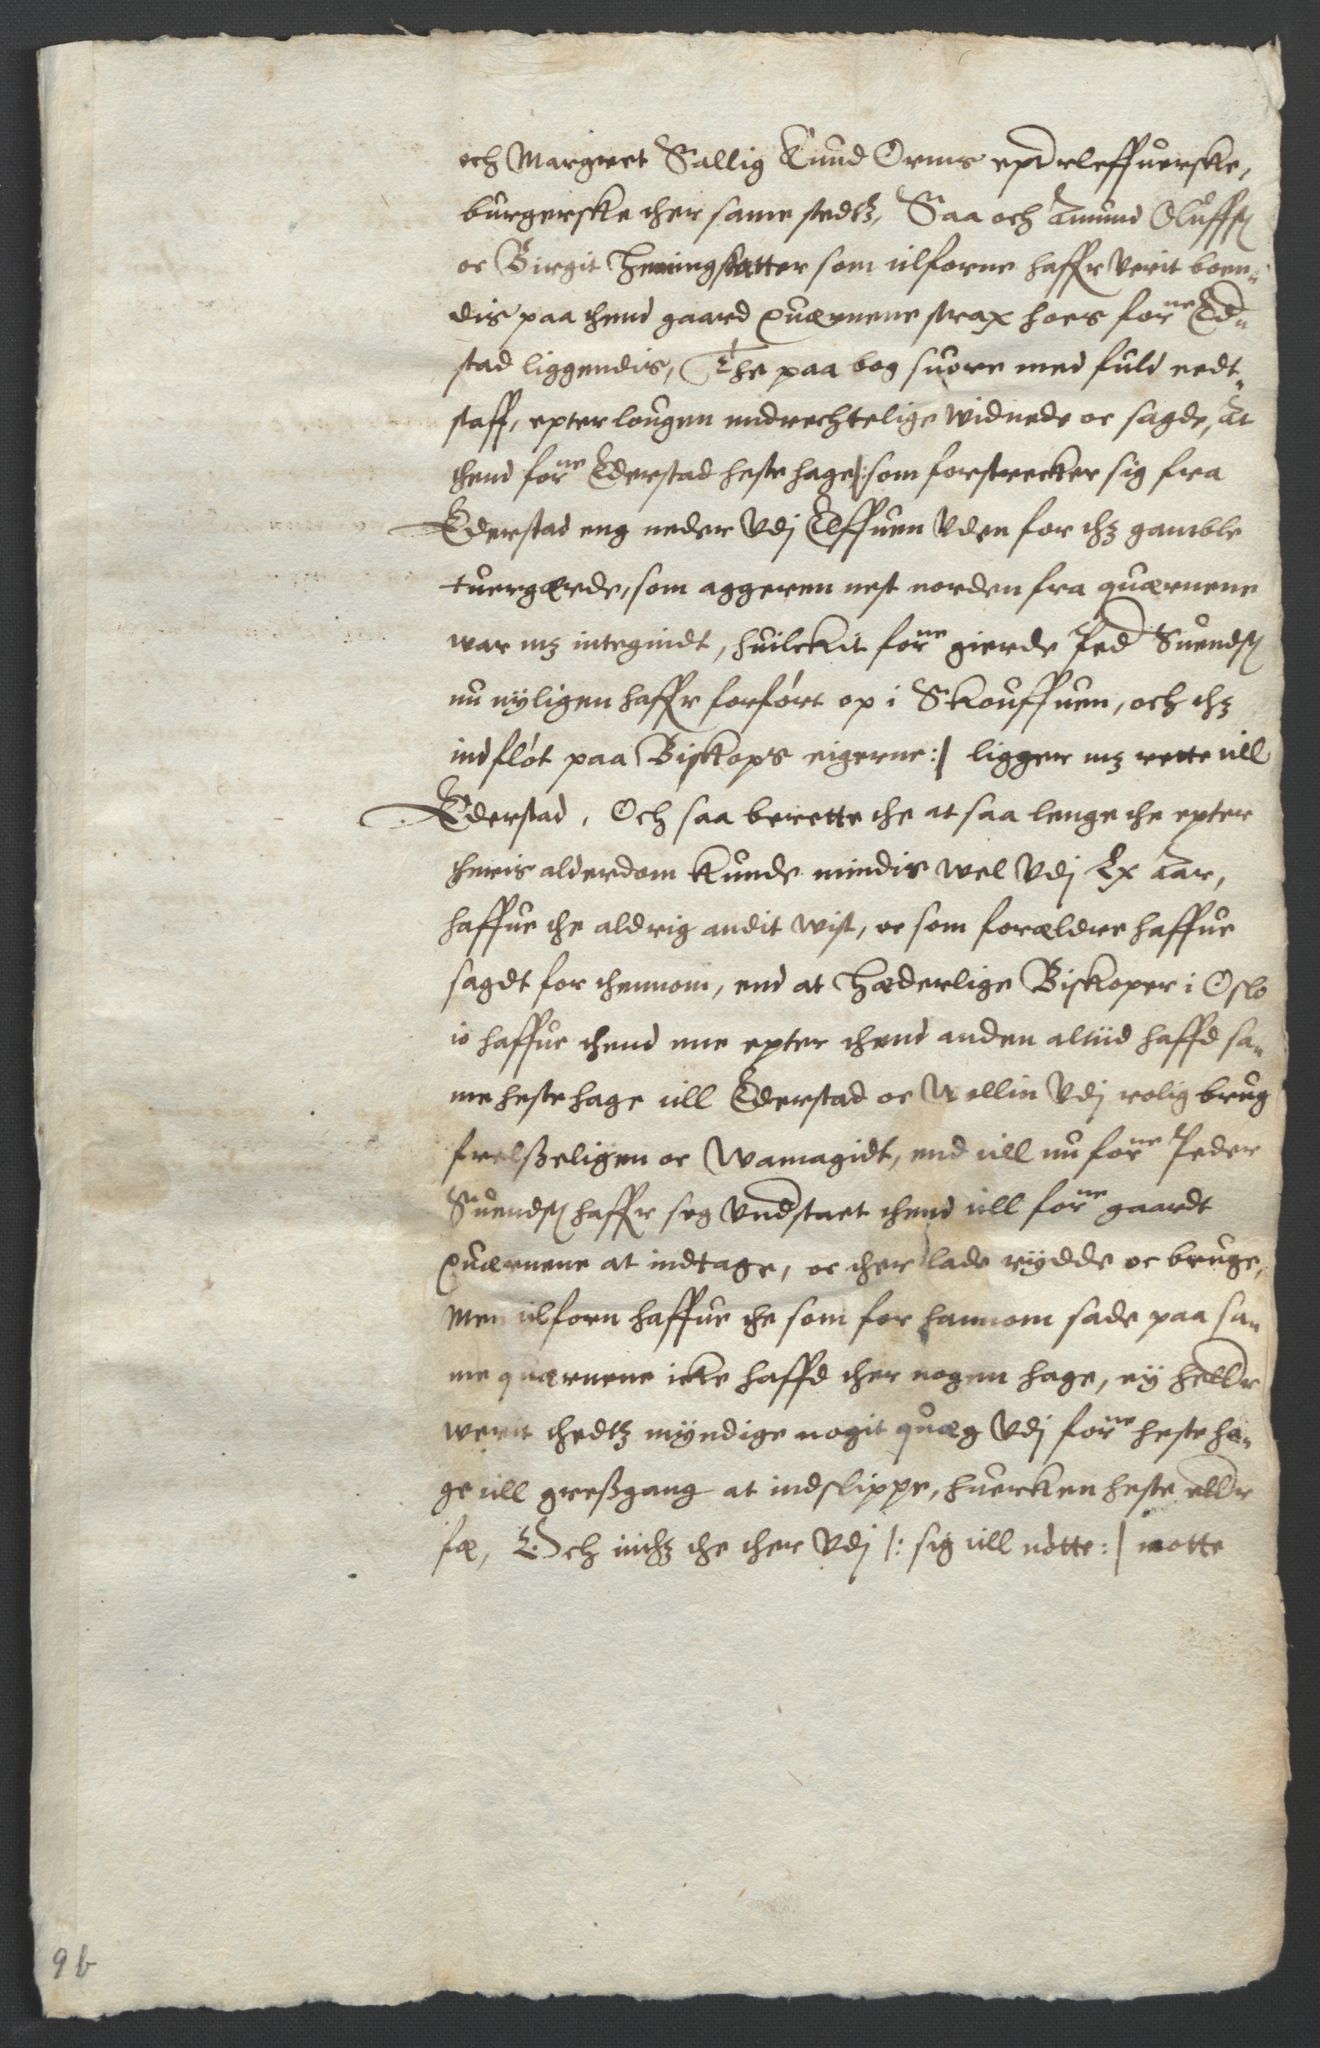 och Margreet Sallig Knud Orms epterleffuerske,
burgerske ther same stedtz, Saa och Amund Oluffß
oc Birgit Heningsdatter som tilforne haffr verit boen„
dis paa thend gaard Quærnene strax hoes forne Ed„
stad liggendis, The paa bog suore med fuld eedt„
staff, epter lougen endrechtelige widnede oc sagde, At
thend forne Ederstad hestehage |: som forstrecker sig fra
Ederstad eng neder vdj Elffuen vden for thz gamble
tuergærde, som aggeren nest norden fra quærnene
war mz integindt, huilckit forne gierde Ped Suendß
nu nyligen haffr forført op i Skouffuen, och thz
indfløt paa Biskops eigerne :| ligger mz rette till
Ederstad, Och saa berette the at saa lenge the epter
theris alderdom kunde mindis wel vdj Lx Aar,
haffue the aldrig andit wist, oc som forældre haffue
sagdt for thennom, end at Hæderlige Biskoper i Oslo
io haffue thend ene epter thend anden altiid haffd sa„
me hestehage till Ederstad oc Wellin vdj rolig brug
frelßeligen oc Wamagidt, end till nu forne Peder
Suendß haffr seg vndstaet thend till forne gaardt
Quærnene at indtage, oc ther lade rydde oc bruge,
Men tilforn haffue the som for hannom sade paa sa„
me quærnene icke haffd ther nogen hage, ey heller
werit thedtz myndige nogit quæg vdj forne hesteha„
ge till greßgang at indslippe, huercken heste eller
fæ, Och inthz the ther vdj |: sig till nøtte :| motte
9b